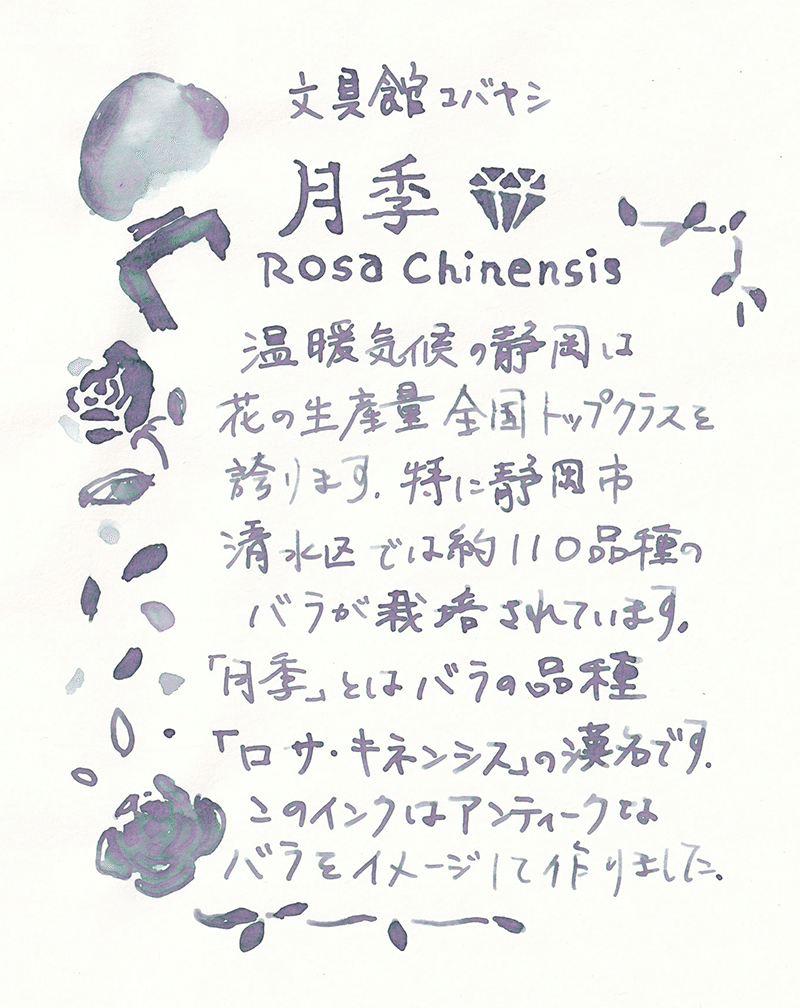 文具館コバヤシ
月季
Rosa Chinensis
温暖気候の静岡は
花の生産量全国トップクラスを
誇ります。特に静岡市
清水区では約110品種の
バラが栽培されています。
「月季」とはバラの品種
「ロサ・キネンシス」の漢名です。
このインクはアンティークな
バラをイメージして作りました。